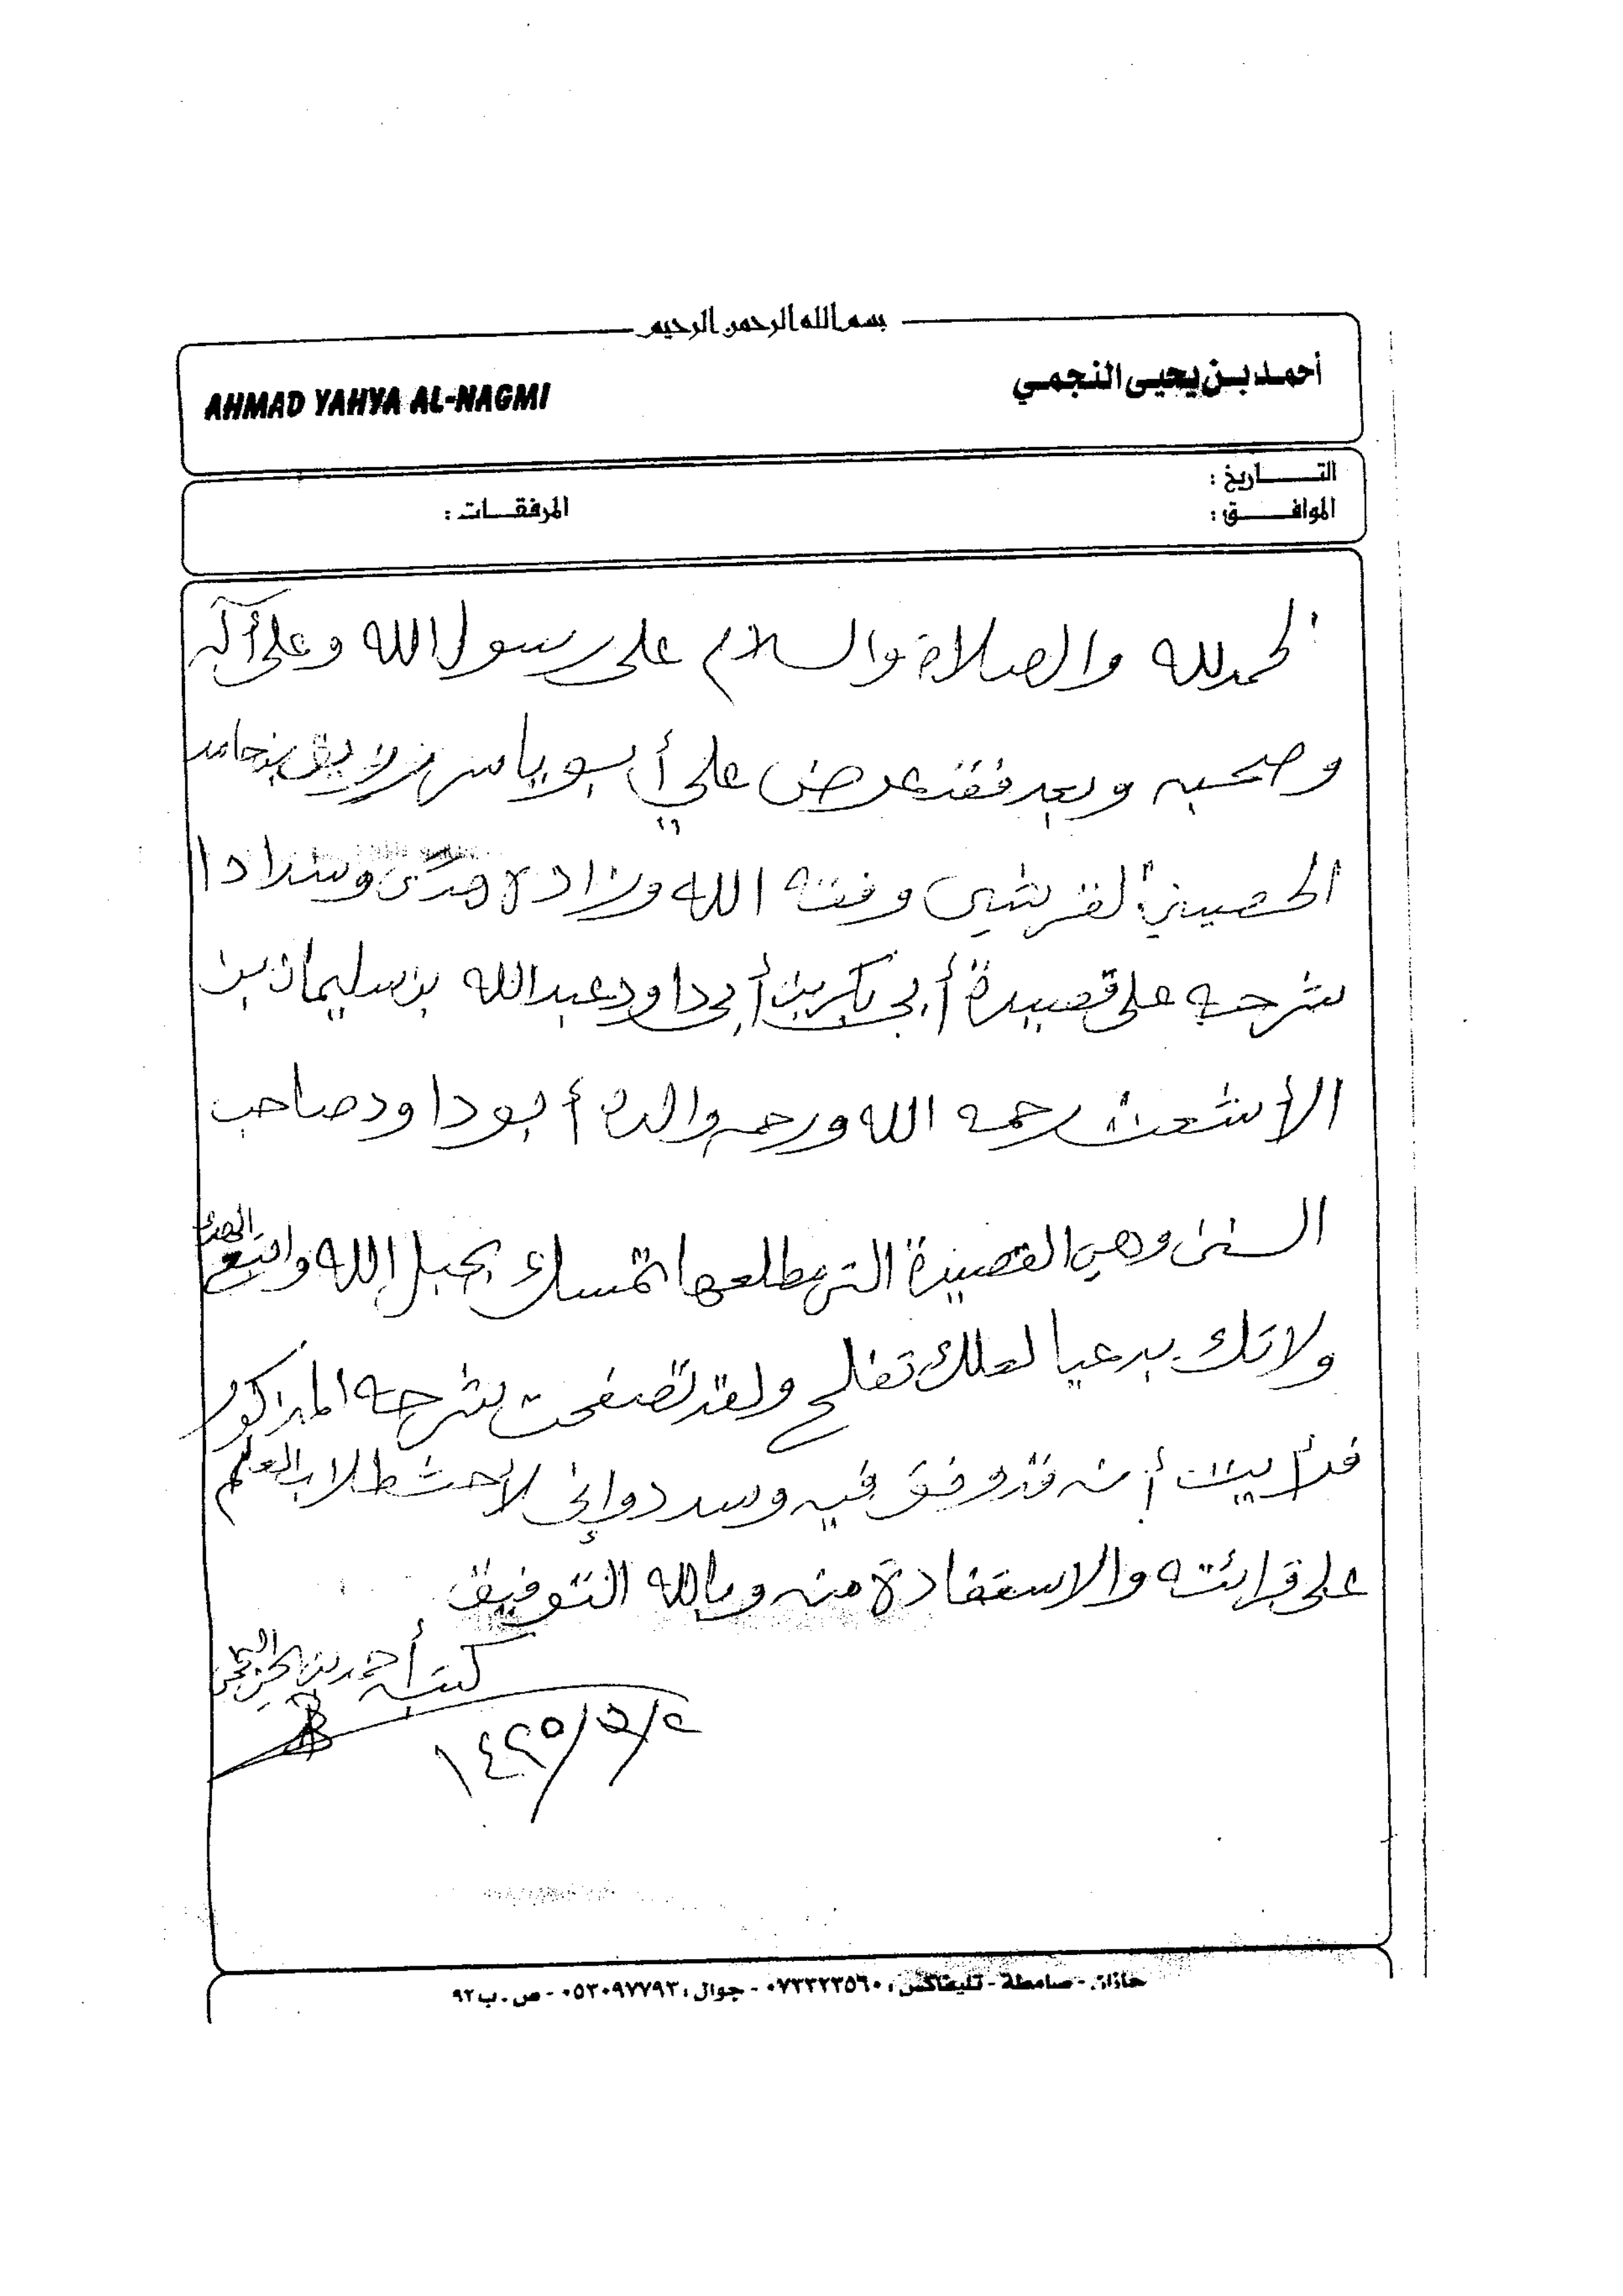 بسم الله الرحمن الرحيم
أحمد بن يحيى النجمي
AHMAD YAHYA AL-NAGMI
التاريخ :
الموافق :
المرفقات :
الحمد لله والصلاة والسلام على رسول الله وعلى آله
وصحبه وبعد فقد عرض علي أبو ياسر زريق بن حامد
الحصيني القرشي وفقه الله وزاده هدى وسدادا
شرحه على قصيدة أبي بكر بن أبي داود عبد الله بن سليمان بن
الأشعث رحمه الله ورحم والده أبو داود صاحب
السنن وهي القصيدة التي مطلعها تمسك بحبل الله واتبع الهدى
ولا تك بدعيا لعلك تفلح ولقد تصفحت شرحه المذكور
فرأيت أنه قد وفق فيه وسدد وإني لأحث طلاب العلم
على قرائته والاستفادة منه وبالله التوفيق
كتبه أحمد بن يحيى النجمي
١٤٢٥/٥/٢
جازان - صامطة - تليفاكس : ٠٧٣٣٢٣٥٦٠ - جوال : ٠٥٣٠٩٧٧٩٣ - ص.ب ٩٢